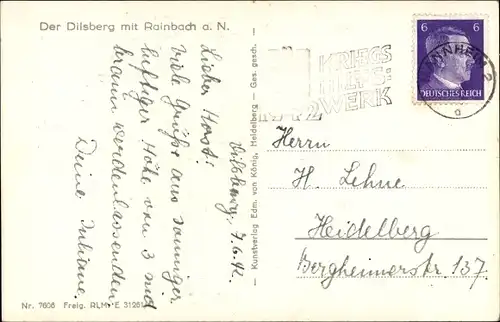 Der Dilsberg mit Rainbach a. N.
Dilsberg, 7.6.42.
Lieber Horst!
Viele Grüße aus sonniger
luftiger Höhe von 3
braun werdenlassenden
Deine
Kunstverlag Edm. von König, Heidelberg – Ges. gesch.
KRIEGS
HILFS-
WERK
1942
6 6
DEUTSCHES REICH
MANNHEIM 2
a
Herrn
H. Lehne
Heidelberg
Bergheimerstr. 137.
Nr. 7606 Freig. RLM E